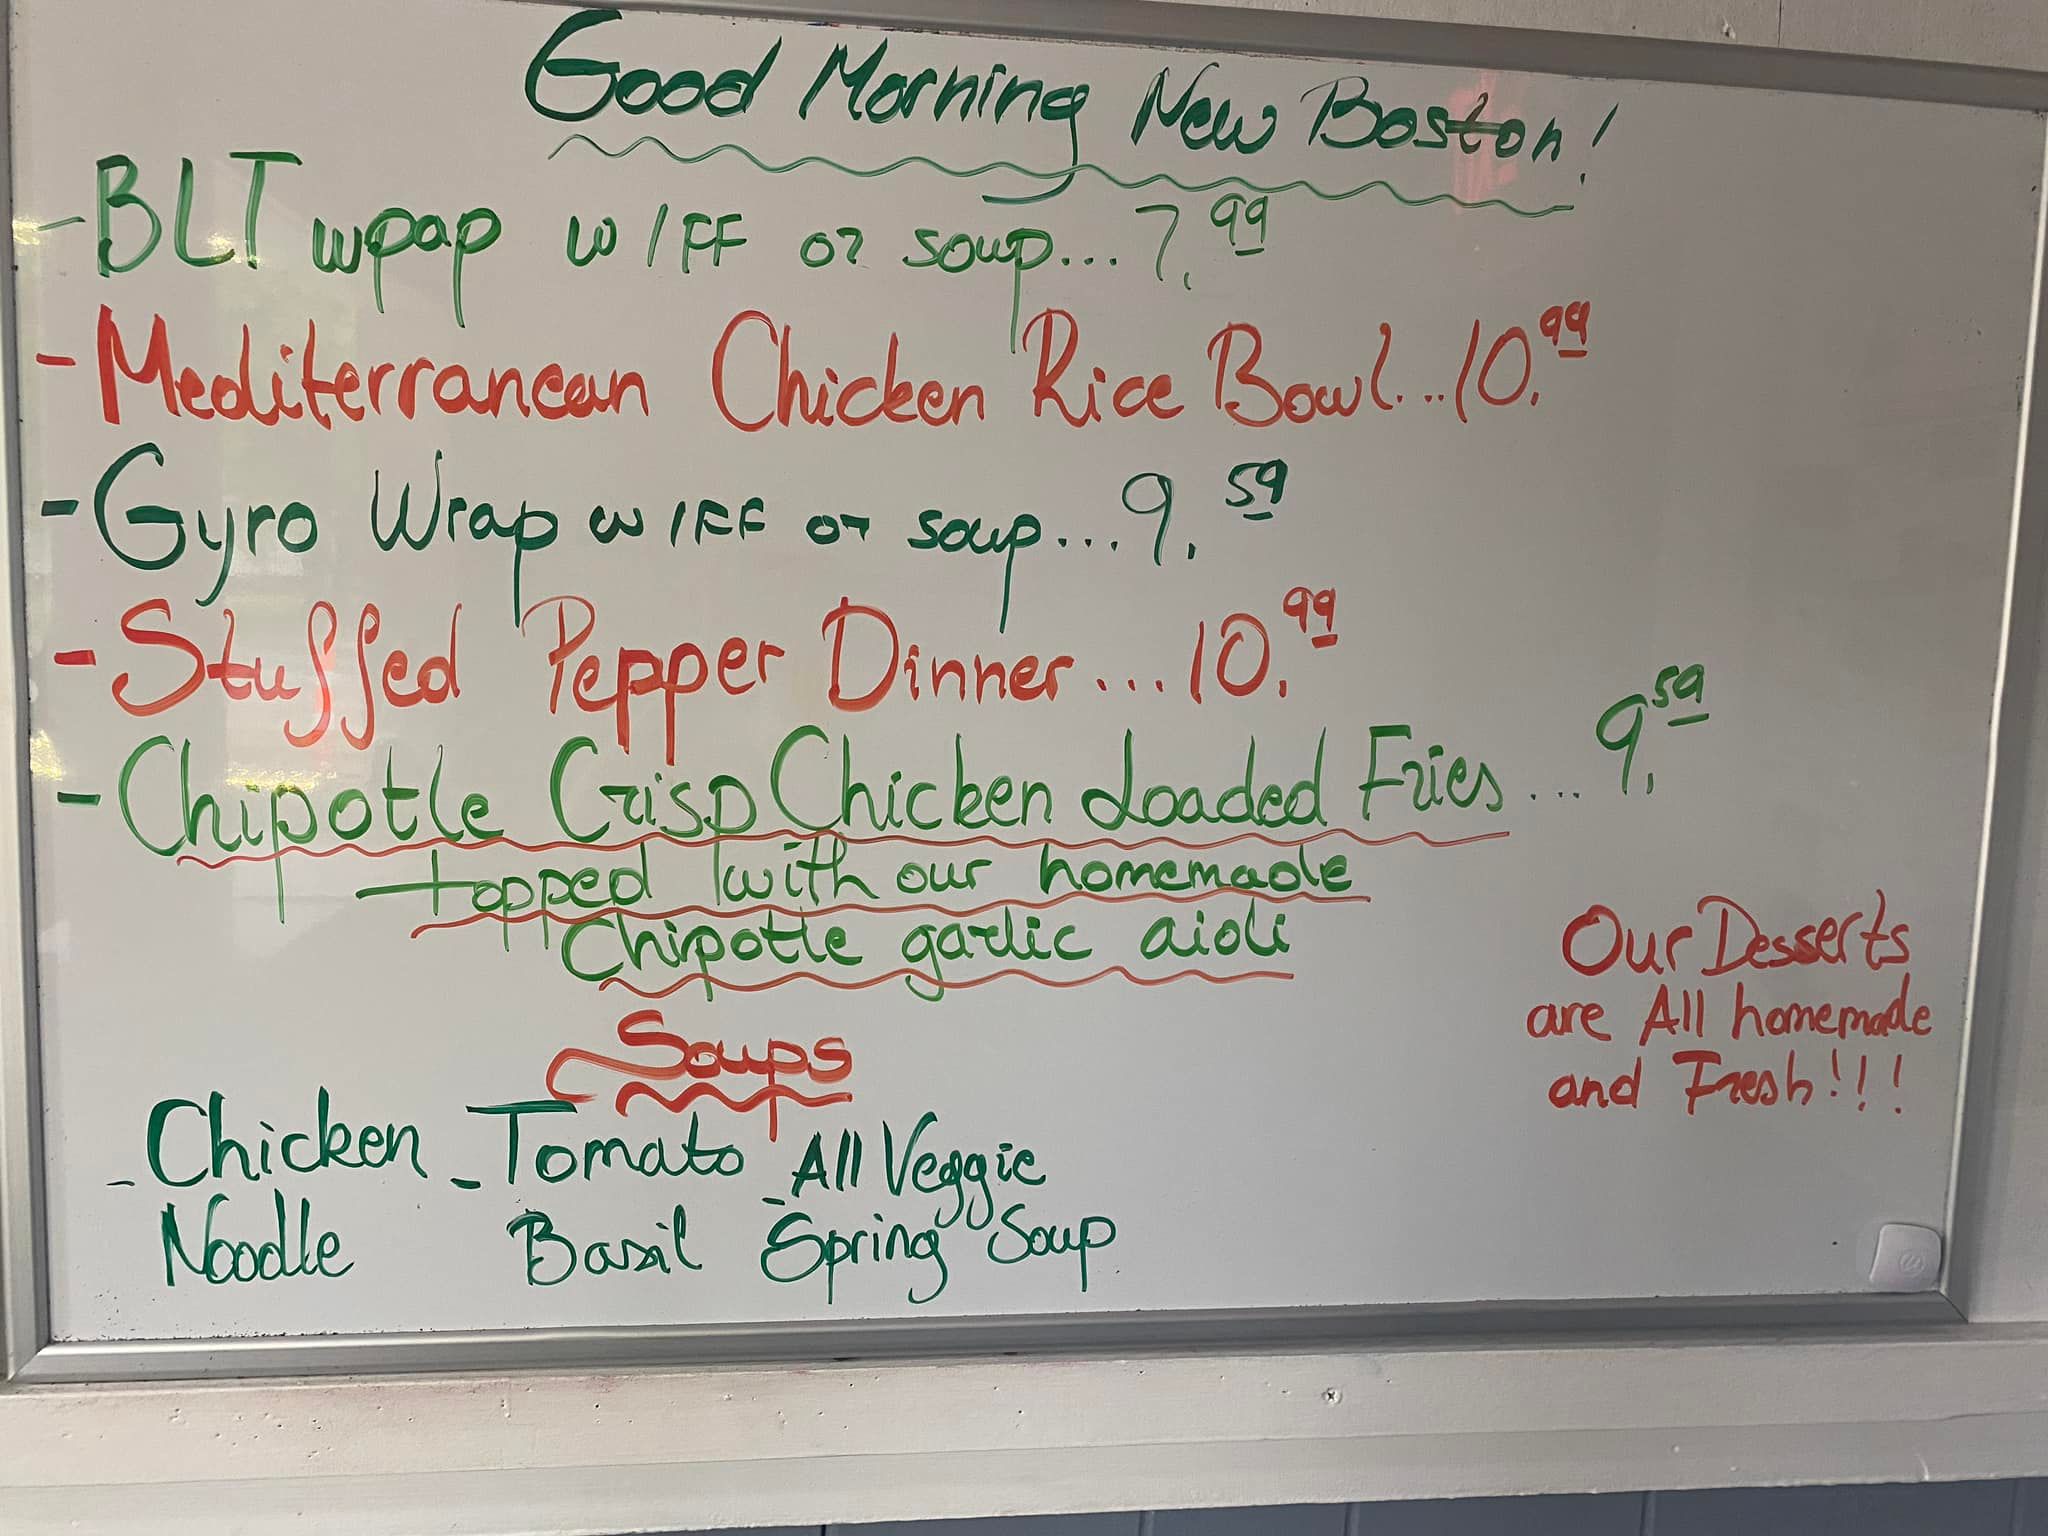 Good Morning New Boston!
- BLT wpap w/FF or soup... 7.99
- Mediterranean Chicken Rice Bowl... 10.99
- Gyro Wrap w/FF or soup... 9.59
- Stuffed Pepper Dinner... 10.99
- Chipotle Crisp Chicken Loaded Fries... 9.59
topped with our homemade
Chipotle garlic aioli
Our Desserts
are All homemade
and Fresh!!!
Soups
- Chicken Noodle
- Tomato Basil
- All Veggie Spring Soup